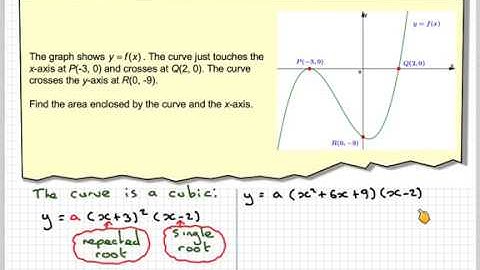 The graph shows y = f(x). The curve just touches the
x-axis at P(-3, 0) and crosses at Q(2, 0). The curve
crosses the y-axis at R(0, -9).
Find the area enclosed by the curve and the x-axis.
y = f(x)
P(-3, 0)
Q(2, 0)
R(0, -9)
The curve is a cubic:
y = a (x+3)² (x-2)
repeated
root
single
root
y = a (x² + 6x + 9) (x-2)